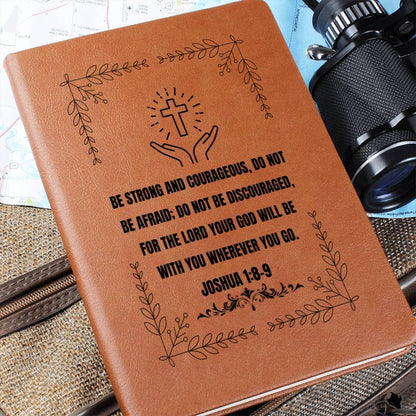 BE STRONG AND COURAGEOUS, DO NOT
BE AFRAID; DO NOT BE DISCOURAGED,
FOR THE LORD YOUR GOD WILL BE
WITH YOU WHEREVER YOU GO.
JOSHUA 1:8-9